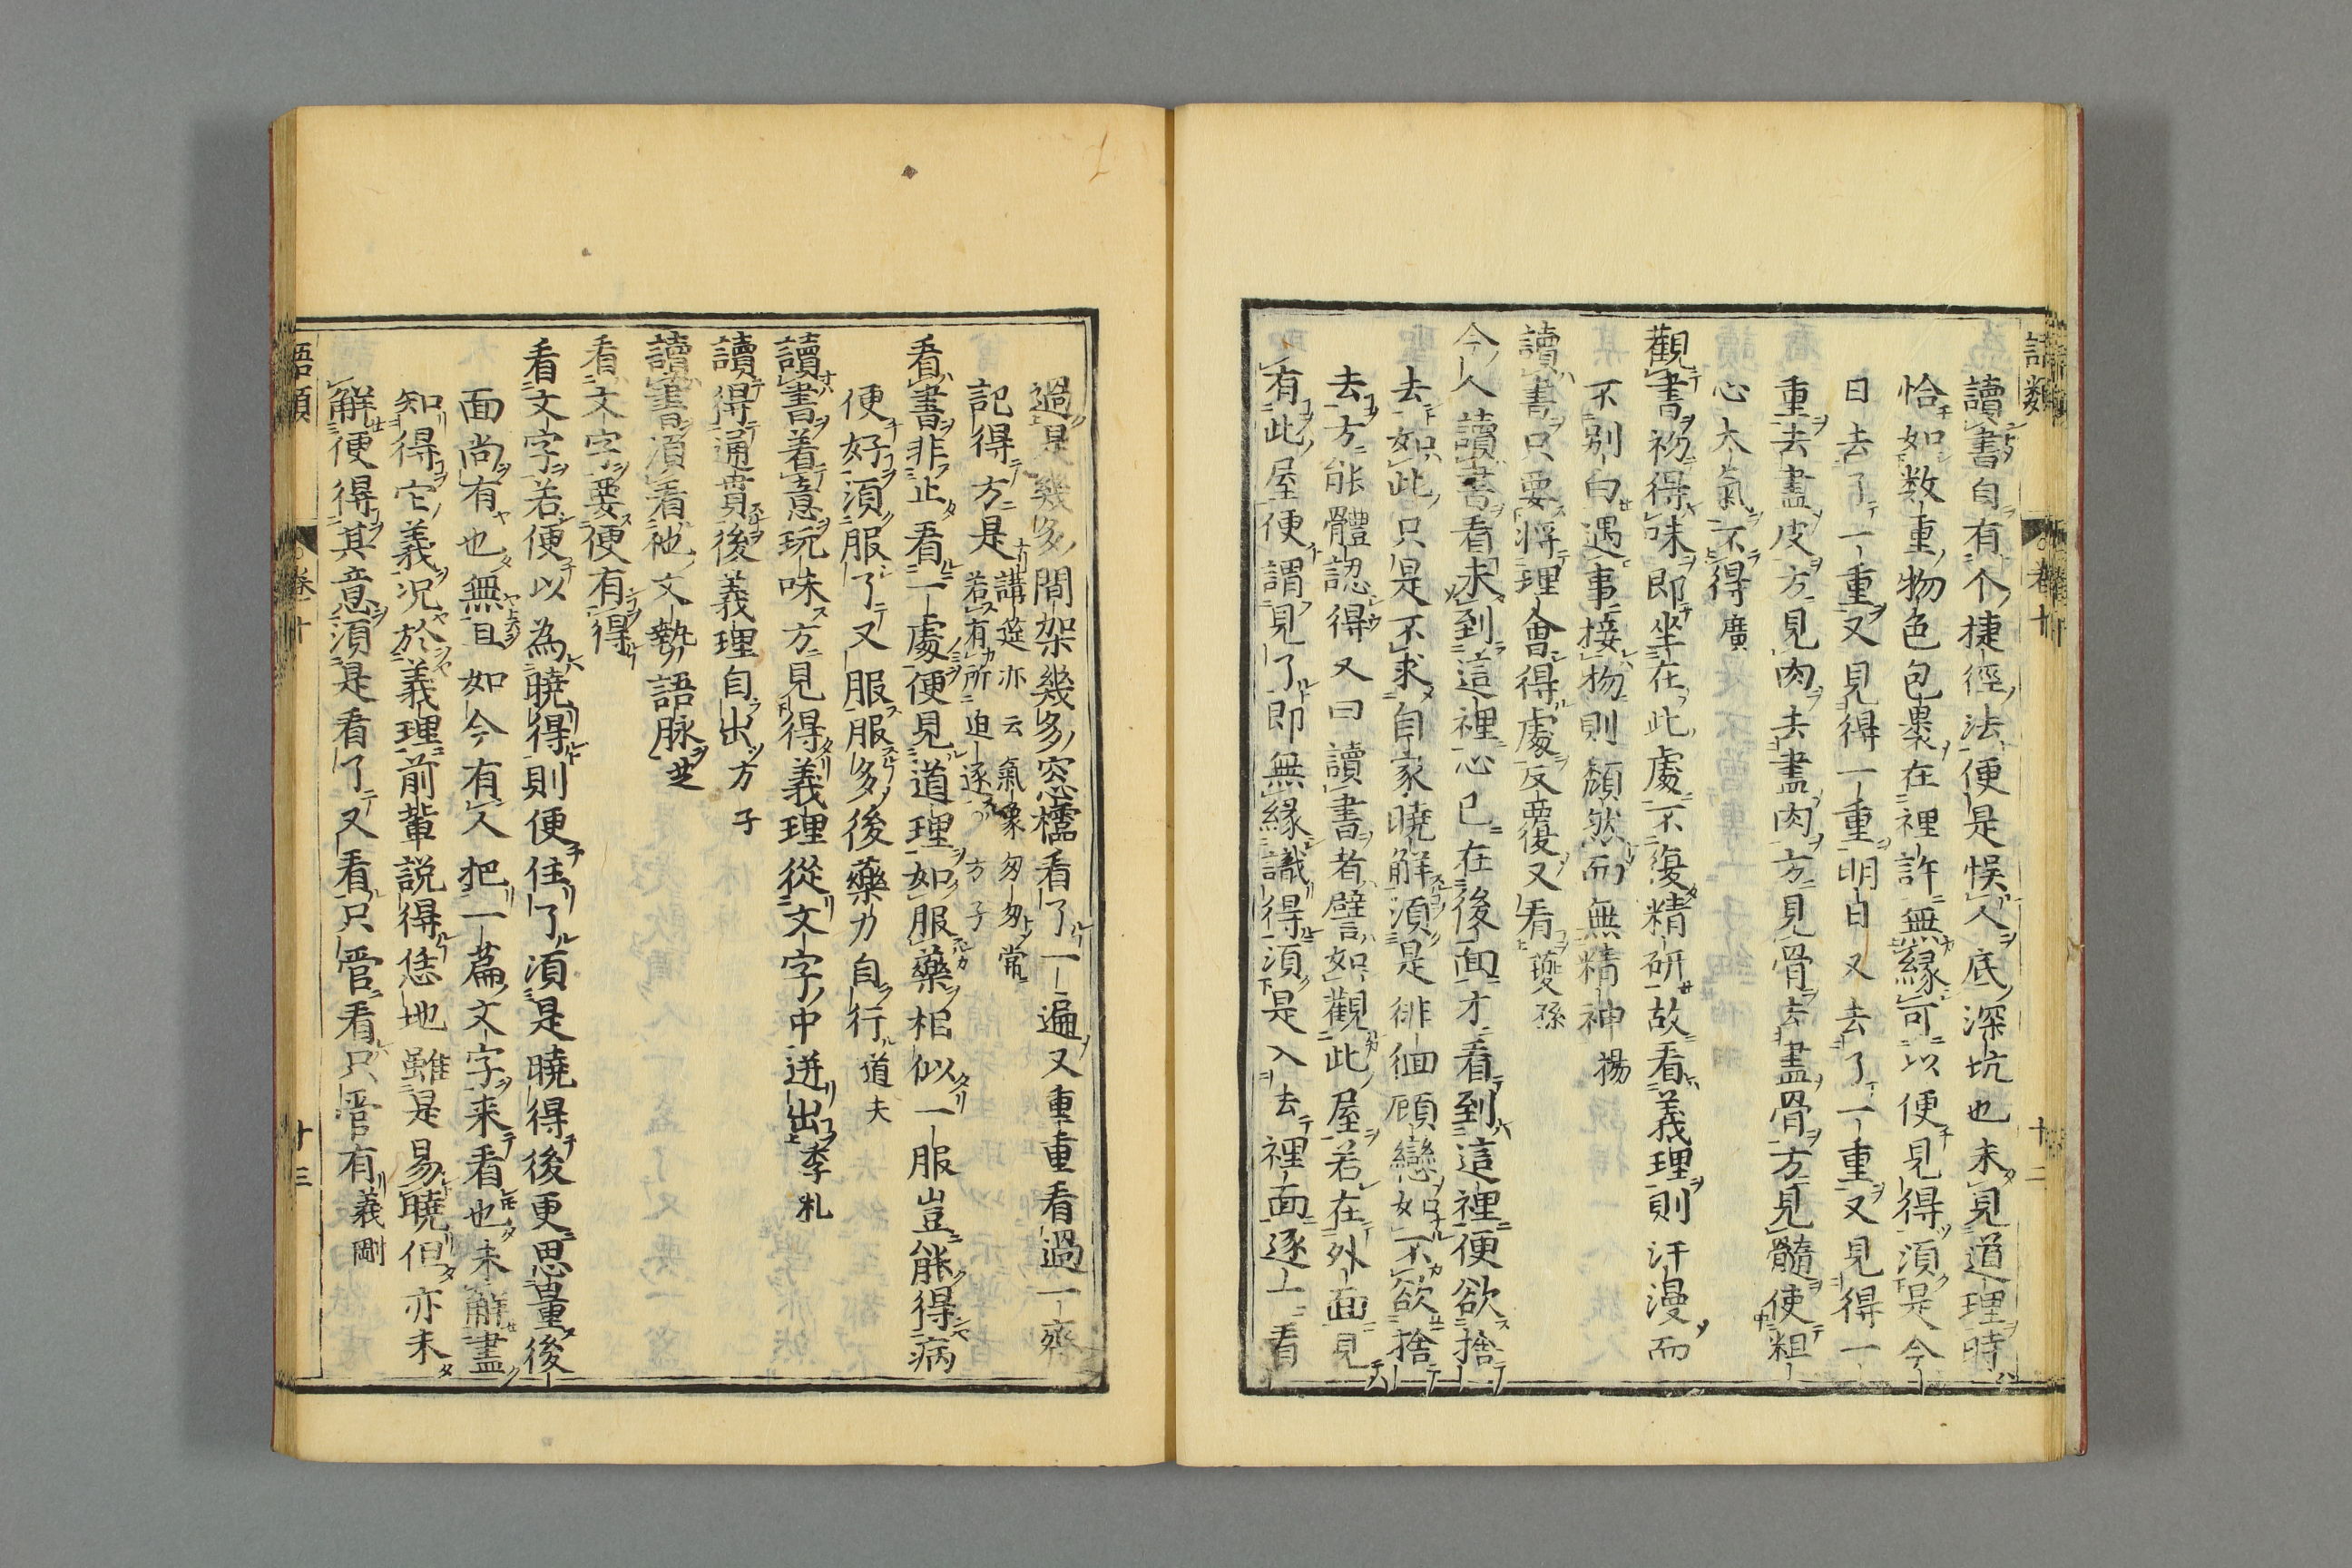 語類
卷十
十二
讀書自有个捷徑法便是悞人底深坑也未見道理時
恰如数重物色包裹在裡許無縁可以便見得須是今
日去了一重又見得一重明日又去了一重又見得一
重去盡皮方見肉去盡肉方見骨去盡骨方見髓使粗
心大氣不得廣
觀書初得味即坐在此處不復精研故看義理則汗漫而
不别白遇事接物則頽然而無精神揚
讀書只要將理會得處反覆又看夔孫
今人讀書看未到這裡心已在後面才看到這裡便欲捨
去如此只是不求自家曉解須是徘徊顧戀如不欲捨
去方能體認得又曰讀書者譬如觀此屋若在外面見
有此屋便謂見了即無縁識得須是入去裡面逐一看
過是幾多間架幾多窓櫺看了一遍又重重看過一齊
記得方是講筵亦云氣象匆匆常
若有所迫逐方子
看書非止看一處便見道理如服藥相似一服豈能得病
便好須服了又服服多後藥力自行道夫
讀書着意玩味方見得義理從文字中迸出季札
讀得通貫後義理自出方子
讀書須看他文勢語脉芝
看文字要便有得
看文字若便以為曉得則便住了須是曉得後更思量後
面尚有也無且如今有人把一篇文字来看也未解盡
知得它義况於義理前輩説得恁地雖是易曉但亦未
解便得其意須是看了又看只管看只管有義剛
語類
卷十
十三